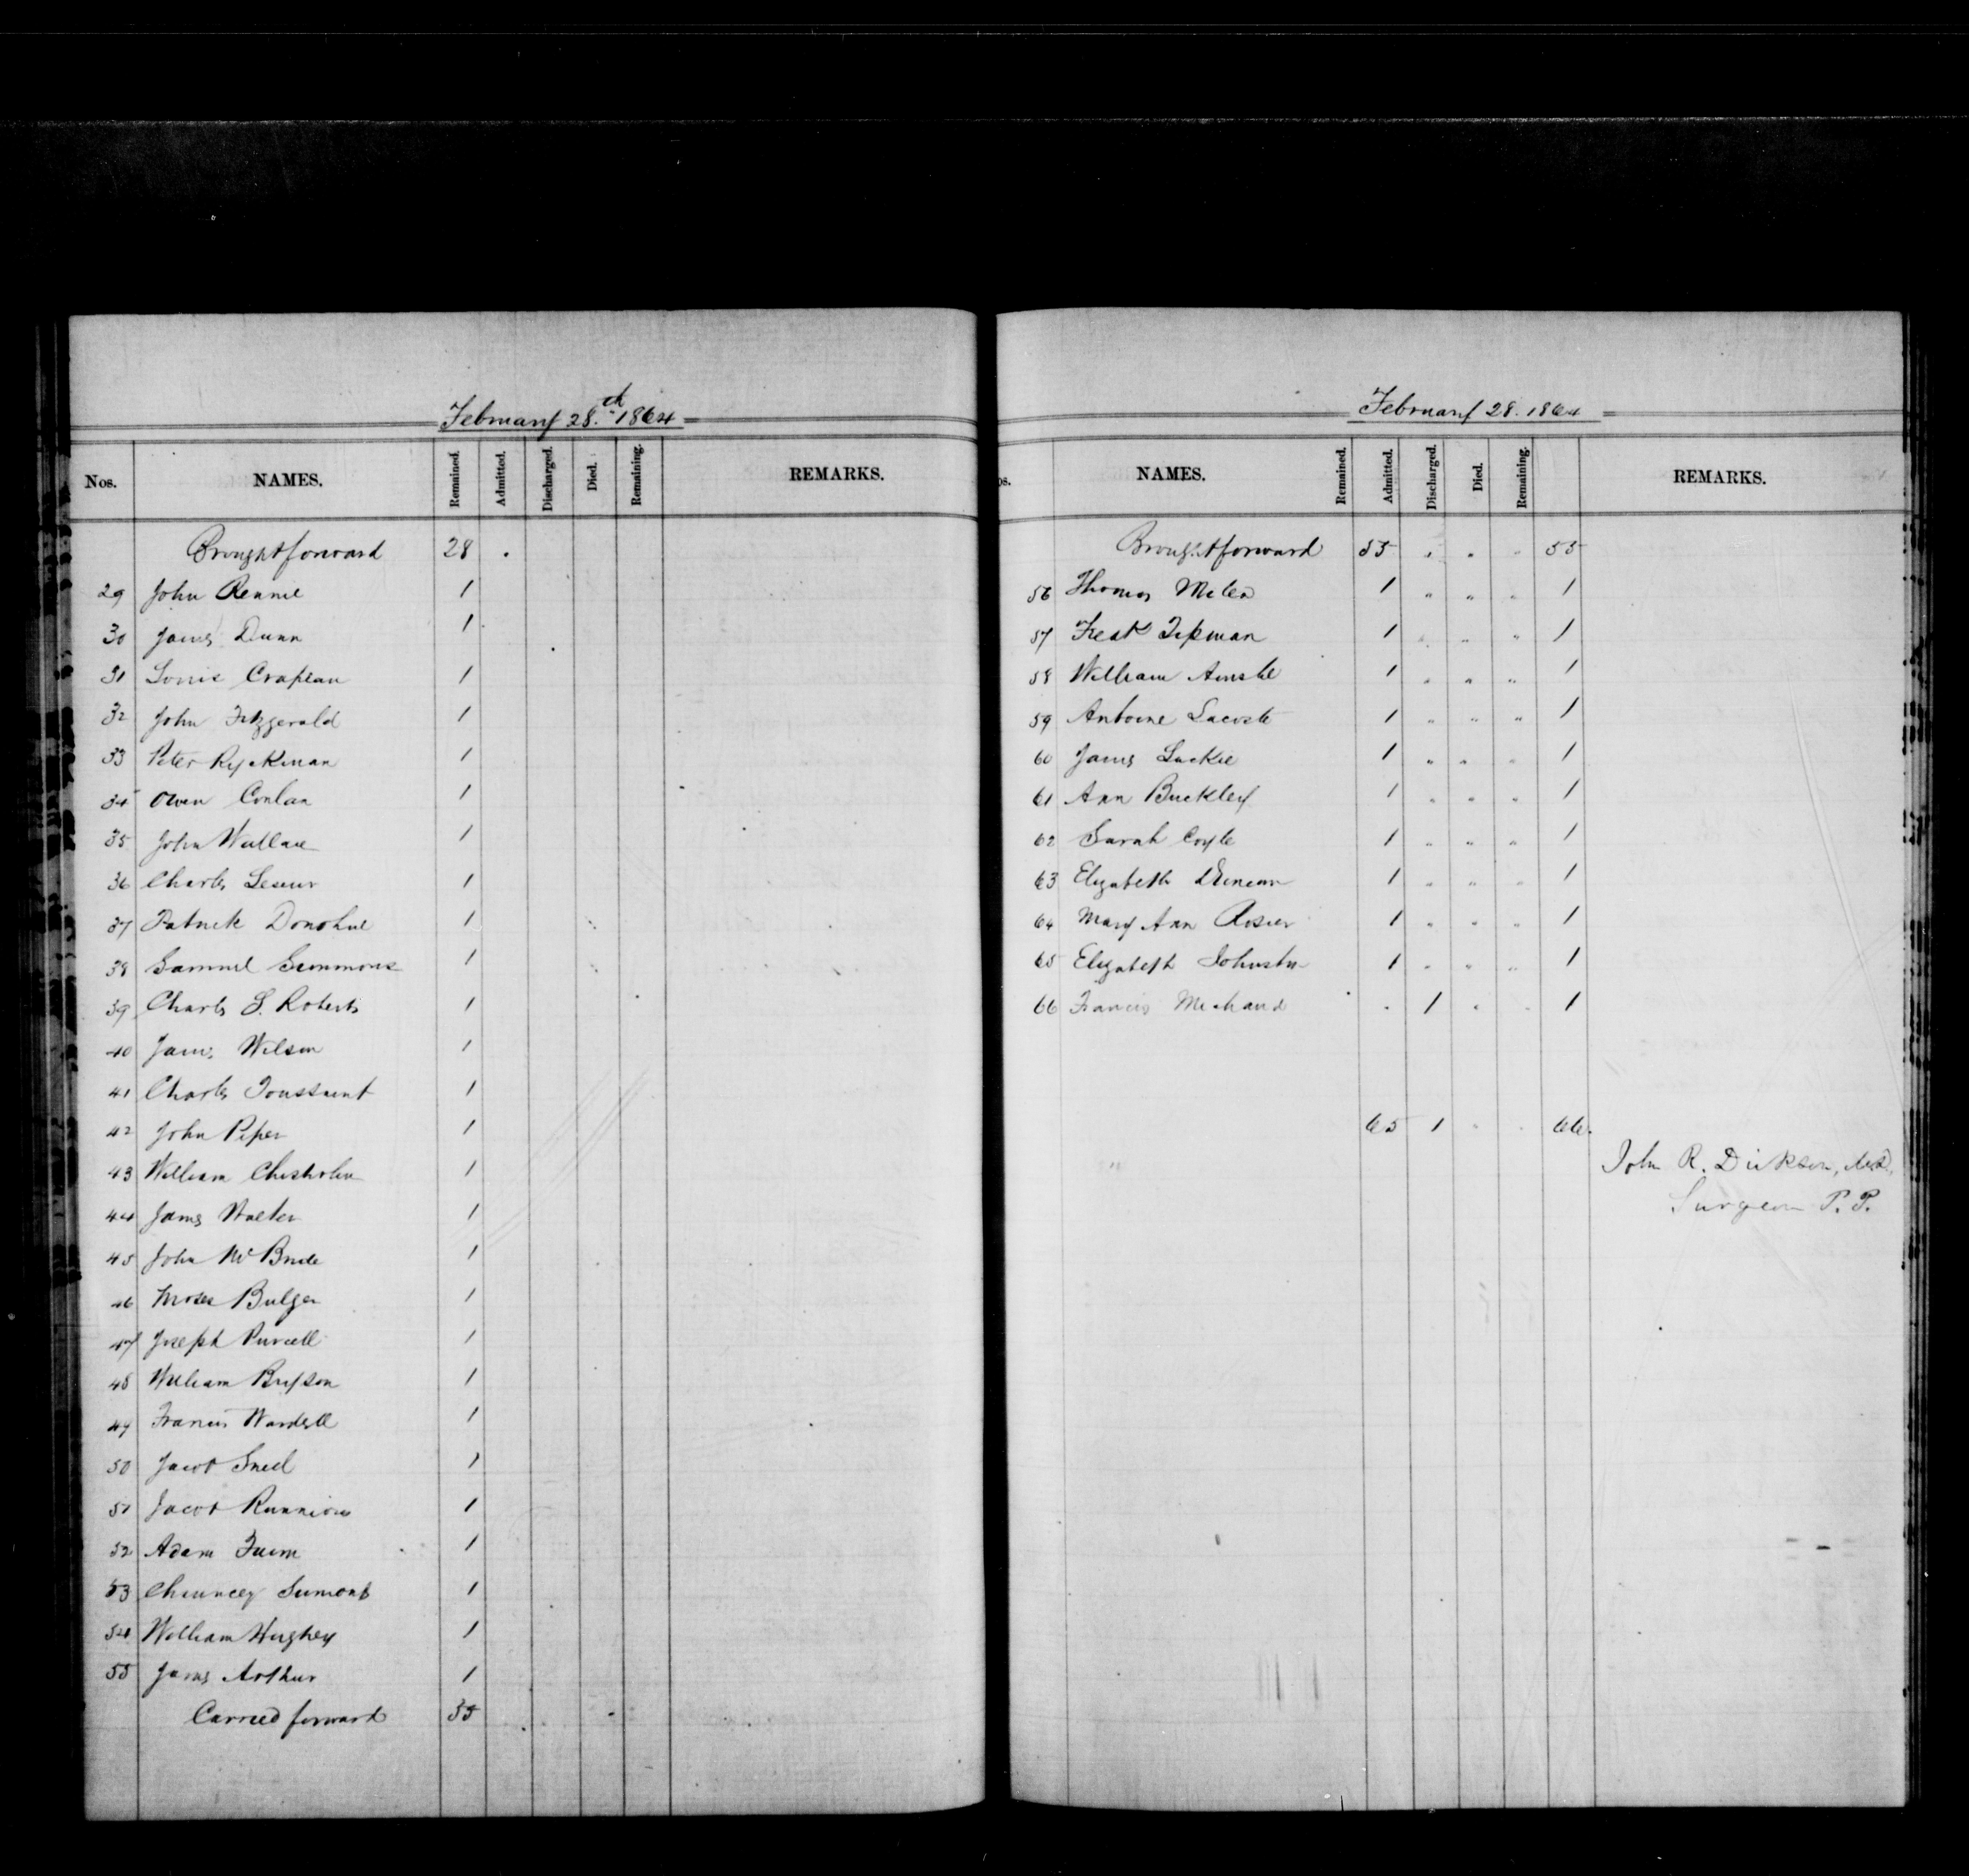 February 28.th 1864
Nos. NAMES. Remained. Admitted. Discharged. Died. Remaining. REMARKS.
Brought forward 28
29 John Rennie 1
30 James Dunn 1
31 Louis Crapeau 1
32 John Fitzgerald 1
33 Peter Ryckman 1
34 Owen Conlan 1
35 John Wallace 1
36 Charles Lesieur 1
37 Patrick Donohue 1
38 Samuel Simmons 1
39 Charles S. Roberts 1
40 James Wilson 1
41 Charles Toussaint 1
42 John Piper 1
43 William Chisholm 1
44 James Walker 1
45 John McBride 1
46 Moses Bulger 1
47 Joseph Purcell 1
48 William Bryson 1
49 Francis Wardell 1
50 Jacob Sneel 1
51 Jacob Runnions 1
52 Adam 1
53 Chauncey 1
54 William Hughey 1
55 James Arthur 1
Carried forward 55
February 28. 1864
os. NAMES. Remained. Admitted. Discharged. Died. Remaining. REMARKS.
Brought forward 55 " " " 55
56 Thomas 1 " " " 1
57 1 " " " 1
58 William Ainslie 1 " " " 1
59 Antoine Lacoste 1 " " " 1
60 James Luckie 1 " " " 1
61 Ann Buckley 1 " " " 1
62 Sarah Coyle 1 " " " 1
63 Elizabeth Duncan 1 " " " 1
64 Mary Ann Rosier 1 " " " 1
65 Elizabeth Johnston 1 " " " 1
66 Francis Michaud " 1 " " 1
65 1 " " 66.
John R. Dickson, M.D.,
Surgeon P. P.